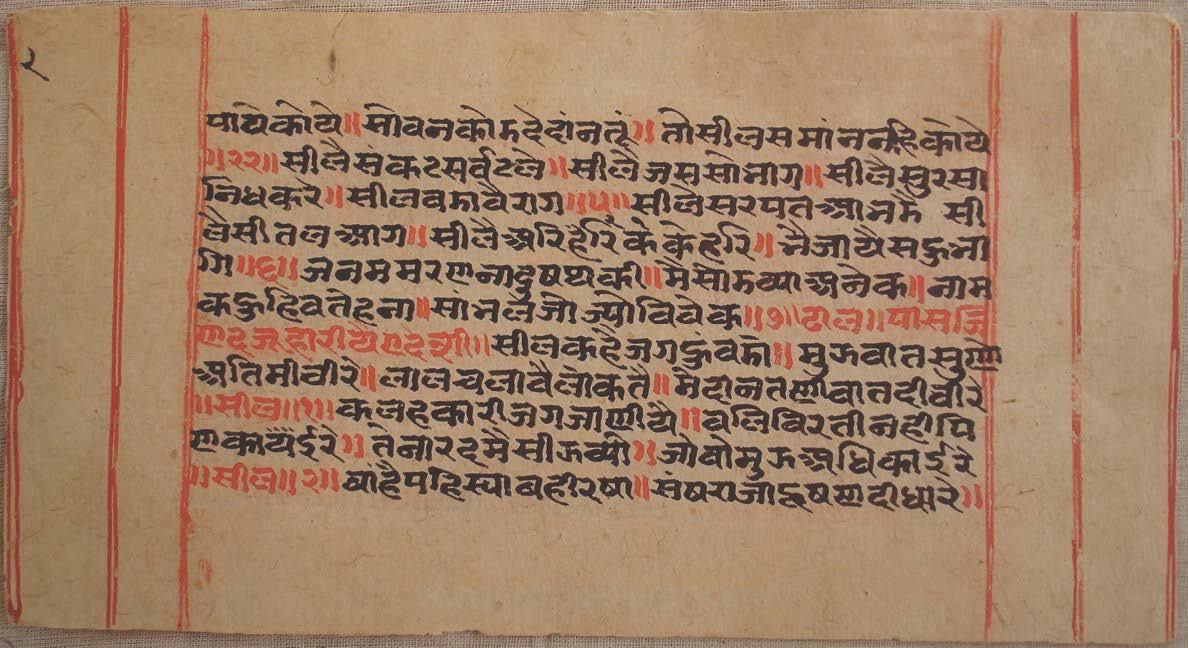 २
पायेकोये॥सोवनकोमदेदांनतूं॥तोसीलसमांननहिकोये
॥२२॥सीलैसंकटसर्वटले॥सीलैजससोभाग॥सीलैसुरसा
निधकरे॥सीलवमावैराग॥५॥सीलैसरपतआनमै सी
लैसीतलआग॥सीलैअरिहरिकेकेहरि॥नैजायैसहुना
गि॥६॥जनममरणनादुषथकी॥मैसोमव्याअनेक॥नाम
कहुहिवतेहना॥सांभलैजोज्योविवेक॥७॥ढाल॥पासजि
णदजूहारीयैएदेशी॥सीलकहैजगहुंवमो॥मुऊवातसुणो
अतिमीठीरे॥लालचलावैलोकतै॥मैदानतणीवातदीठीरे
॥सील॥१॥कलहकारीजगजाणीये॥वलिविरतीनहीपि
णकायईरे॥तेनारदमैसीऊव्यो॥जोवोमुऊअधिकाईरे
॥सील॥२॥बांहैपहिस्याबहीरषा॥संषराजादूषणदीधारे॥